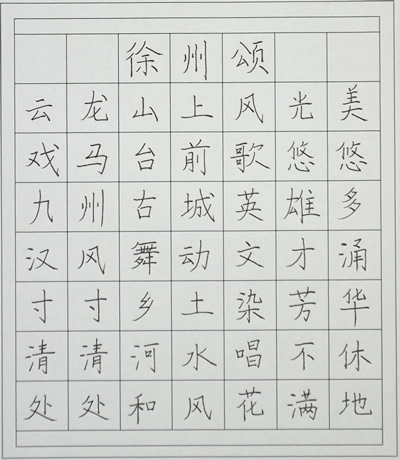 徐州颂
云龙山上风光美
戏马台前歌悠悠
九州古城英雄多
汉风舞动文才涌
寸寸乡土染芳华
清清河水唱不休
处处和风花满地